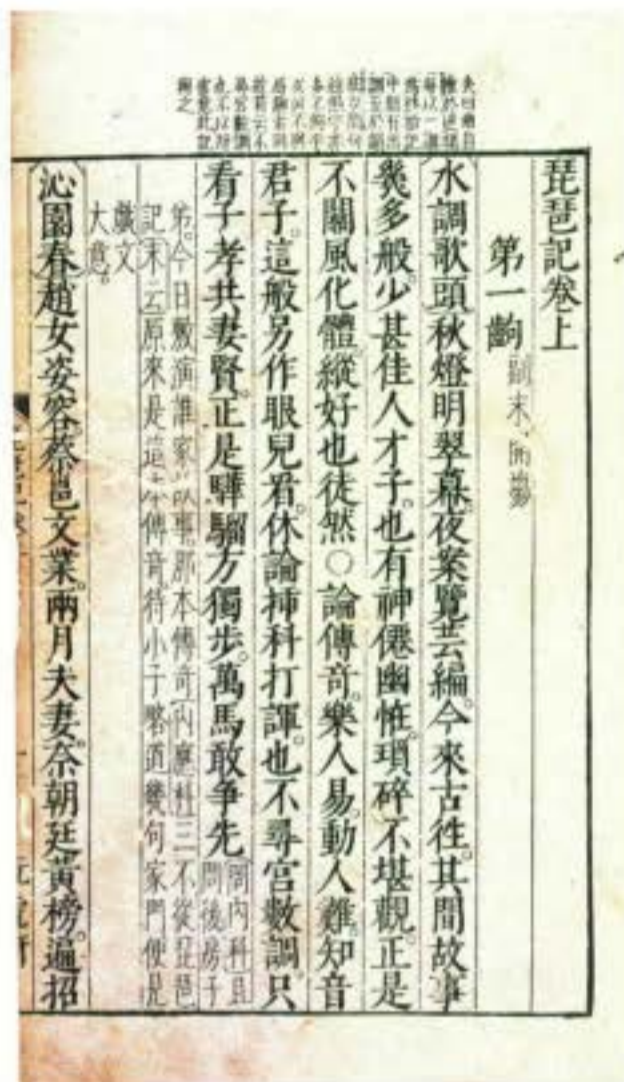 琵琶記卷上
第一齣 副末開場
〔水調歌頭〕秋燈明翠幕。夜案覽芸編。今來古徃。其間故事
幾多般。少甚佳人才子。也有神僊幽怪。瑣碎不堪觀。正是
不關風化體。縱好也徒然○論傳奇。樂人易。動人難。知音
君子。這般另作眼兒看。休論揷科打諢。也不尋宮數調。只
看子孝共妻賢。正是驊騮方獨步。萬馬敢爭先〔問內科〕且
問後房子
弟。今日敷演誰家故事。那本傳奇〔內應科〕三不從琵琶
記〔末云〕原來是這本傳奇。待小子略道幾句家門。便見
戲文
大意。
〔沁園春〕趙女姿容。蔡邕文業。兩月夫妻。奈朝廷黃榜。遍招